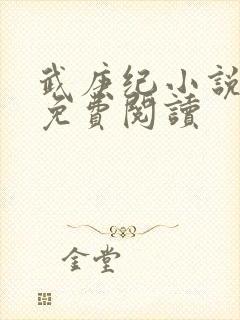 武庚纪小説
免費閱讀
金堂